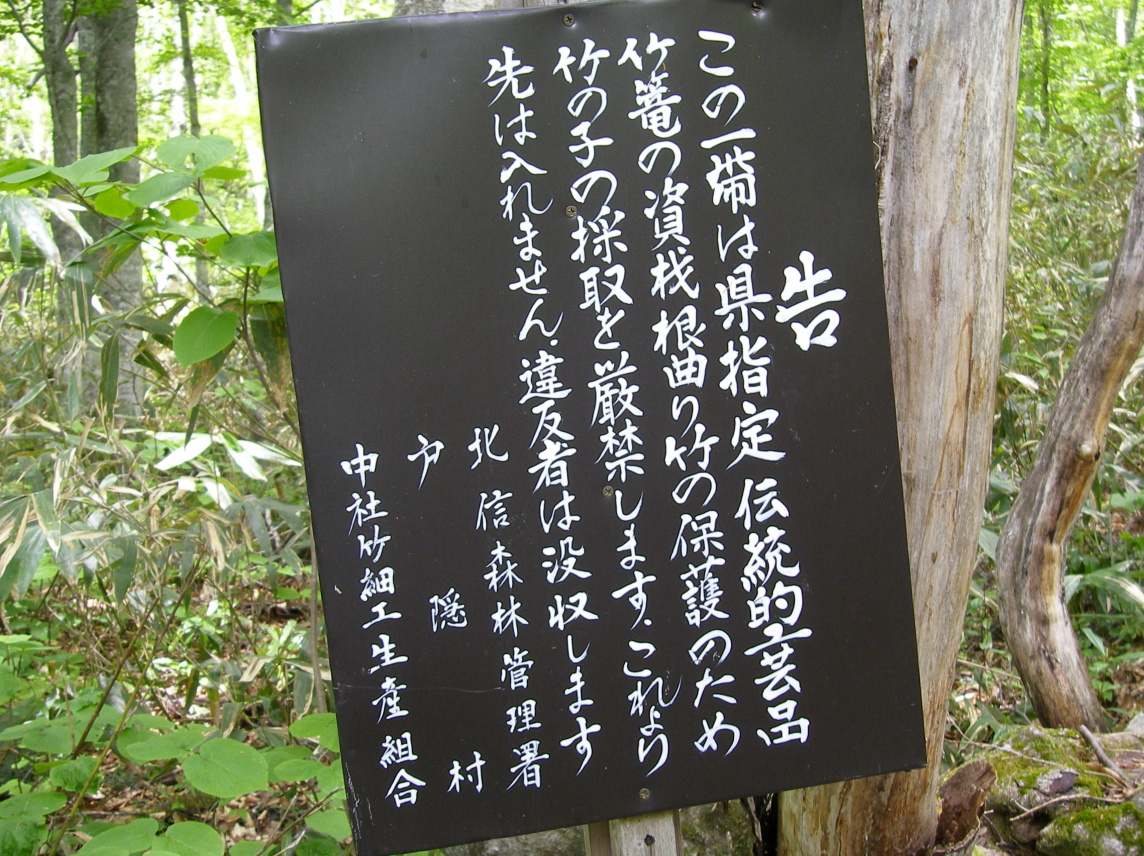 告
この一帯は県指定伝統的芸品
竹篭の資材根曲り竹の保護のため
竹の子の採取を厳禁します、これより
先は入れません、違反者は没収します
北信森林管理署
戸隠村
中社竹細工生産組合